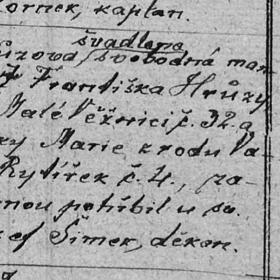 ornek, kaplan.
švadlena
ůzova, svobodná man
ž Františka Hrůzy
Malé Věžnici č. 32. a
ky Marie z rodu Va-
Rytířek č. 4., za-
nou pohřbil u sv.
ef Šimek, děkan.